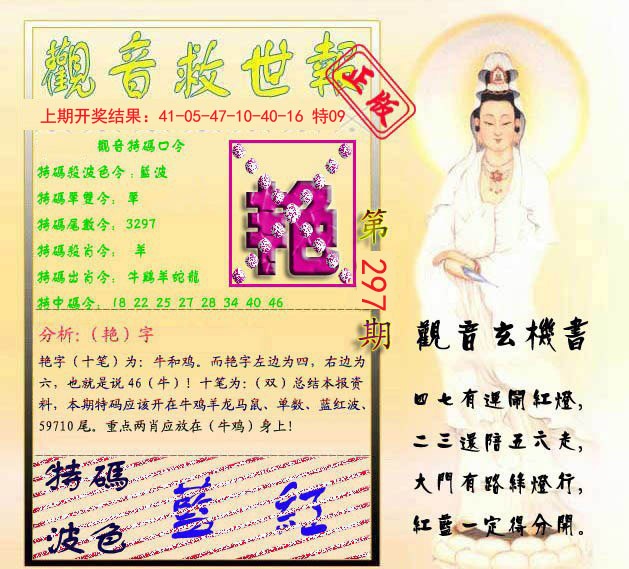 觀音救世報
正版
上期开奖结果：41-05-47-10-40-16 特09
觀音特碼口令
特碼殺波色令：藍波
特碼單雙令： 單
特碼尾數令：3297
特碼殺肖令： 羊
特碼出肖令：牛鷄羊蛇龍
特中碼令： 18 22 25 27 28 34 40 46
艳
第297期
分析：（艳）字
艳字（十笔）为：牛和鸡。而艳字左边为四，右边为
六，也就是说46（牛）！十笔为：（双）总结本报资
料，本期特码应该开在牛鸡羊龙马鼠、单数、蓝红波、
59710 尾。重点两肖应放在（牛鸡）身上！
特碼
波色
藍 紅
觀音玄機書
四七有運開紅燈，
二三還陪五六走，
大門有路綠燈行，
紅藍一定得分開。